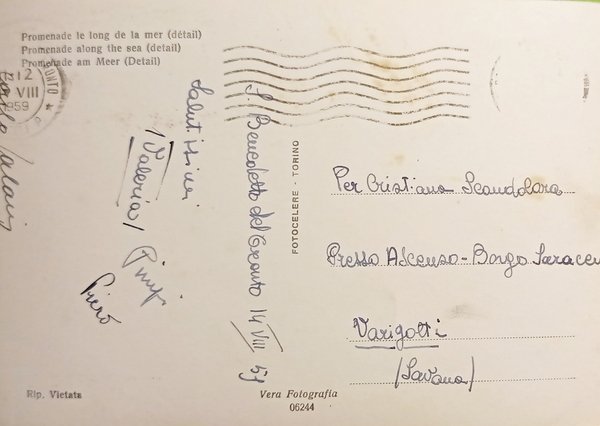 Promenade le long de la mer (détail)
Promenade along the sea (detail)
Promenade am Meer (Detail)
12
VIII
1959
Salutissimi
(Valeria)
Pimpi
Piero
S. Benedetto del Tronto 14 VIII 59
FOTOCELERE - TORINO
Per Cristiana Scandolara
Presso Ascenso - Borgo Saraceni
Varigotti
(Savona)
Rip. Vietata
Vera Fotografia
06244